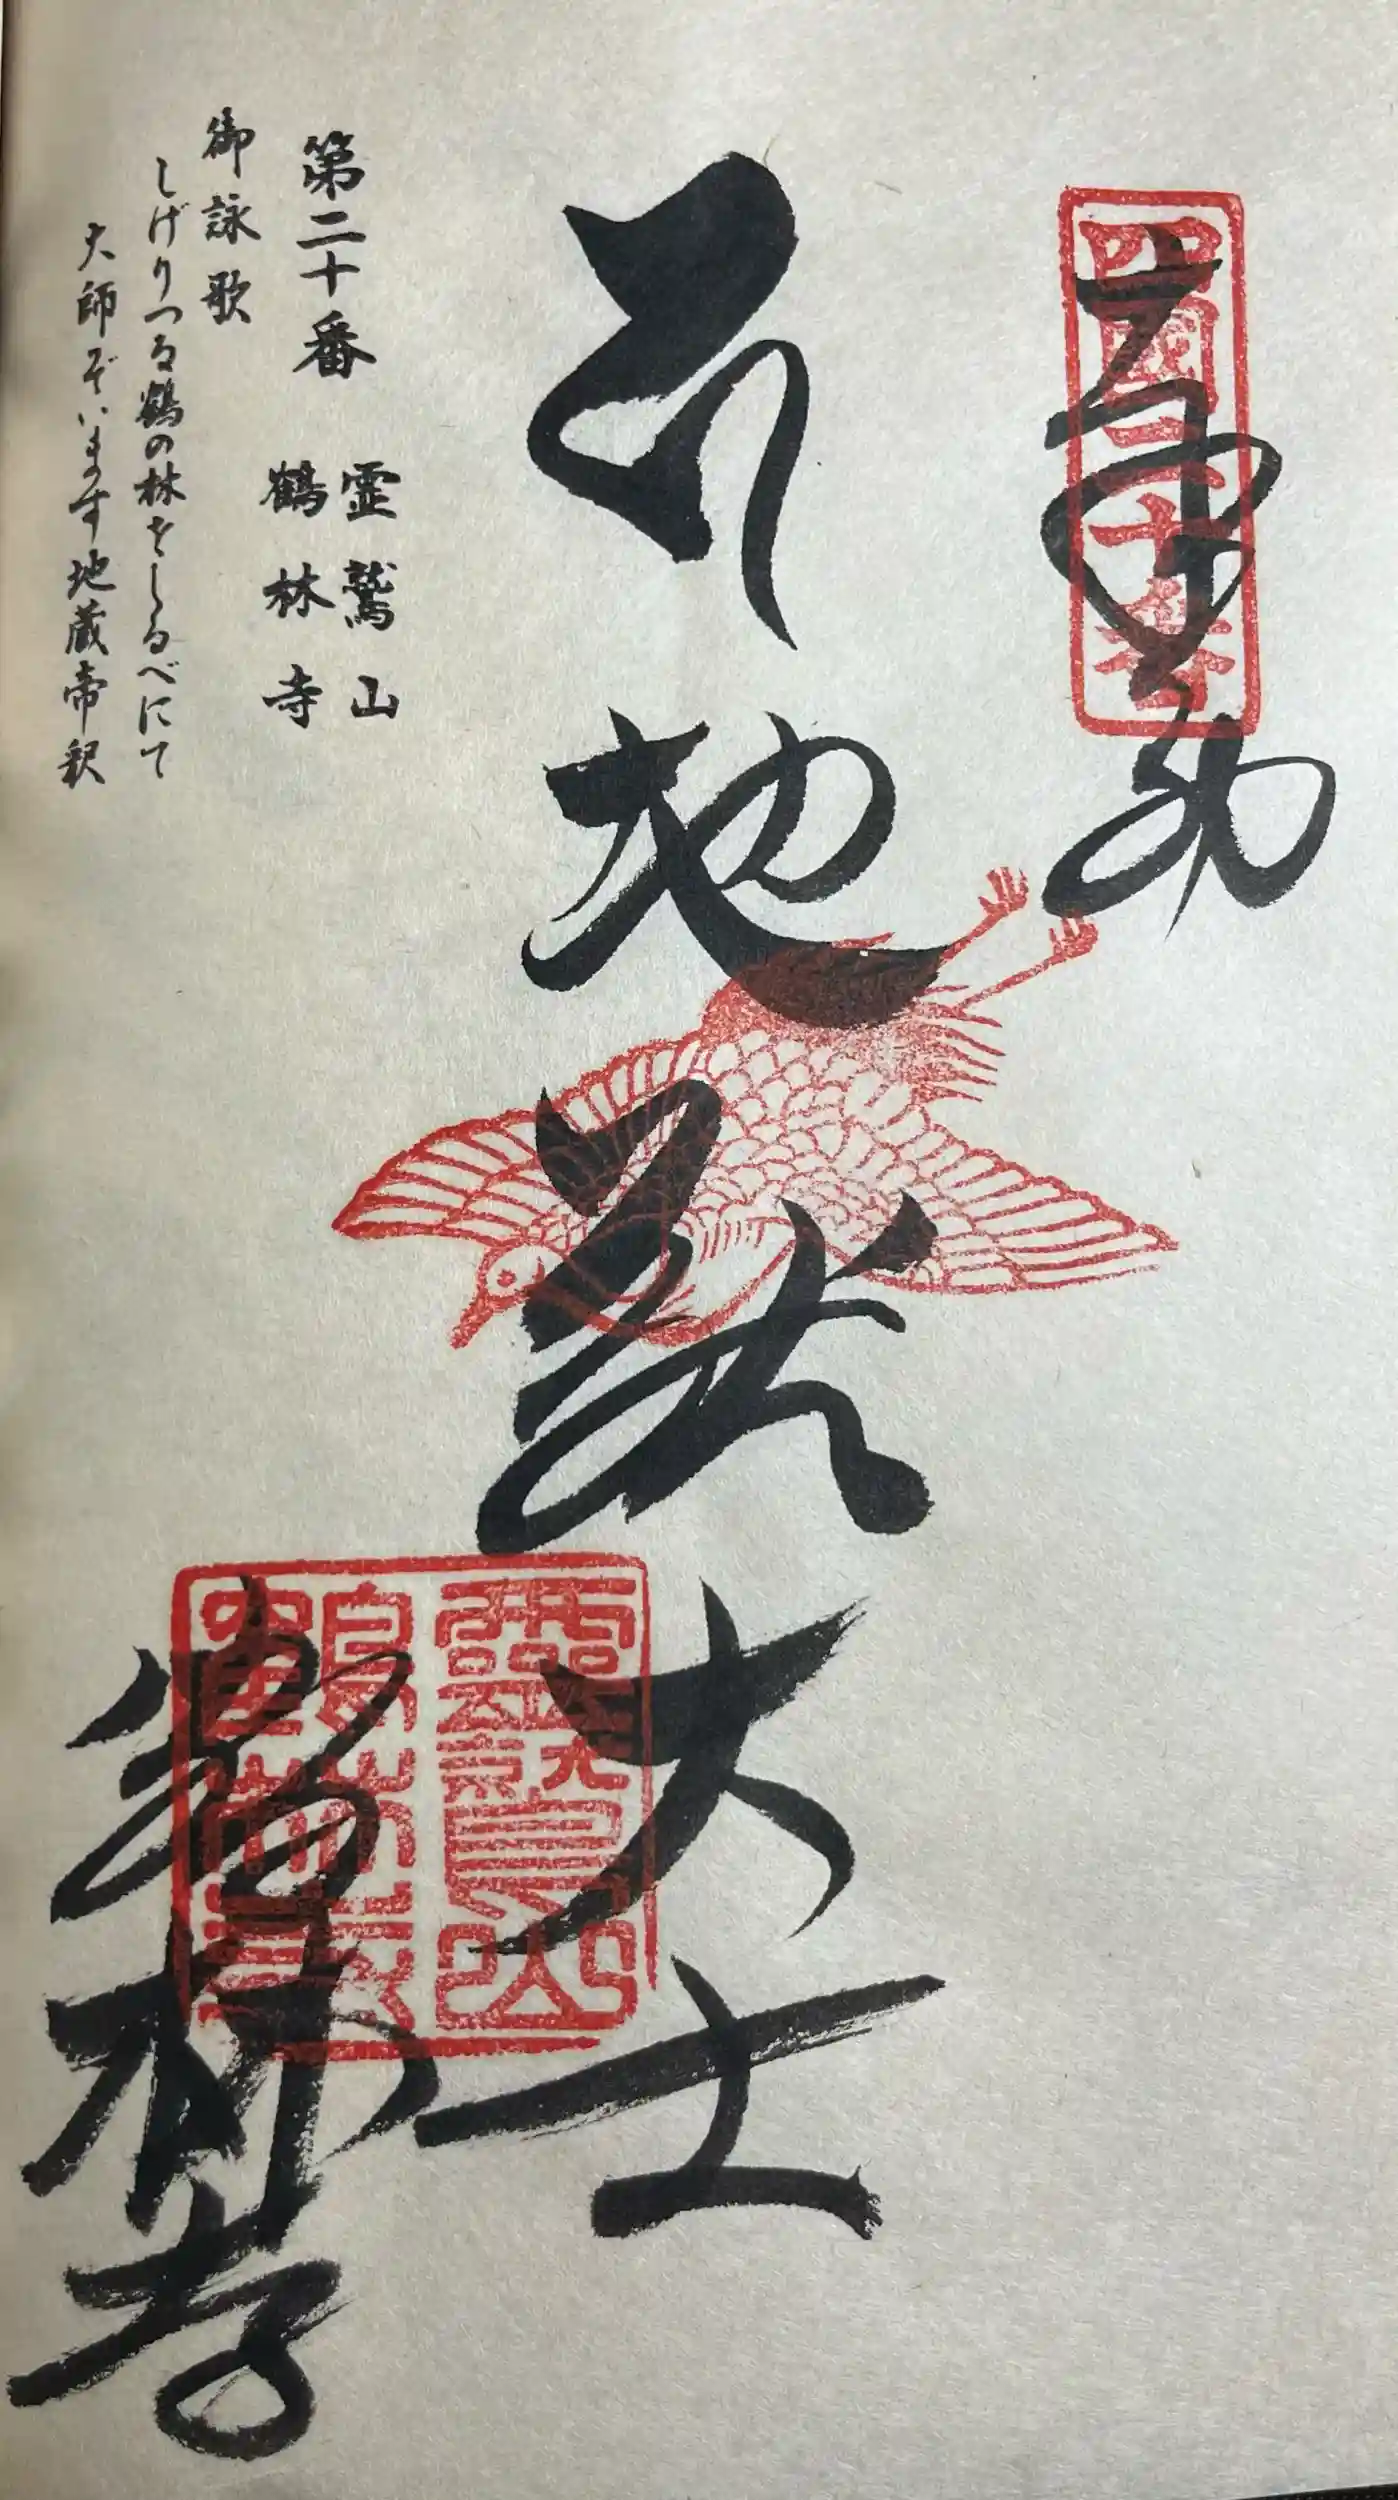 奉納
四國二十番
地蔵大士
霊鷲山鶴林寺
鶴林寺
第二十番 霊鷲山
鶴林寺
御詠歌
しげりつる鶴の林をしるべにて
大師ぞいます地蔵帝釈